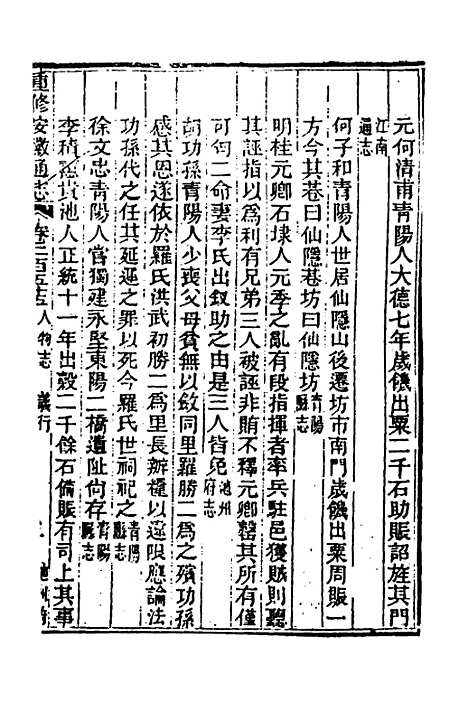 元何清甫青陽人大德七年歲饑出粟二千石助賑詔旌其門
江南通志
何子和青陽人世居仙隱山後遷坊市南門歲饑出粟周賑一
方今其巷曰仙隱巷坊曰仙隱坊青陽縣志
明桂元卿石埭人元季之亂有段指揮者率兵駐邑獲賊則聽
其誣指以為利有兄弟三人被誣非賄不釋元卿罄其所有僅
可何二命妻李氏出釵助之由是三人皆免池州府志
胡功孫青陽人少喪父母貧無以斂同里羅勝二為之殯功孫
感其恩遂依於羅氏洪武初勝二為里長辦糧以違限應論法
功孫代之任其延遲之罪以死今羅氏世祠祀之青陽縣志
徐文忠青陽人嘗獨建永堅東陽二橋遺址尙存青陽縣志
李積
貴池人正統十一年出穀二千餘石備賑有司上其事
重修安徽通志
卷二百五十五
人物志
義行